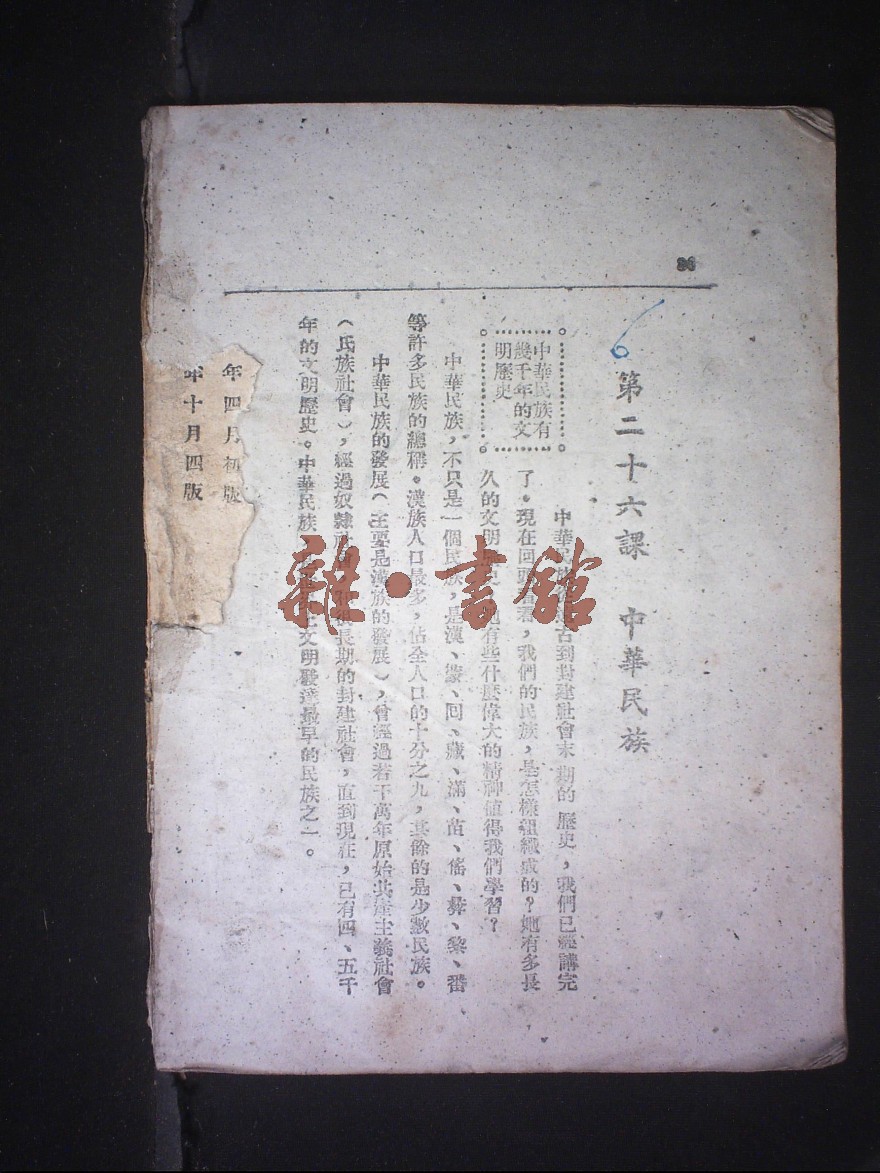 第二十六課 中華民族
中華民族有
幾千年的文
明歷史
古到封建社會末期的歷史,我們已經講完
了。現在回頭看看,我們的民族,是怎樣組織成的?她有多長
久的文明歷史?她有些什麼偉大的精神值得我們學習?
中華民族,不只是一個民族,是漢、蒙、回、藏、滿、苗、傜、彝、黎、番
等許多民族的總稱。漢族人口最多,佔全人口的十分之九,其餘的是少數民族。
中華民族的發展(主要是漢族的發展),曾經過若干萬年原始共產主義社會
(氏族社會),經過奴隸社會 很長期的封建社會,直到現在,已有四、五千
年的文明歷史。中華民族 文明發達最早的民族之一。
年四月初版
年十月四版
雜·書館